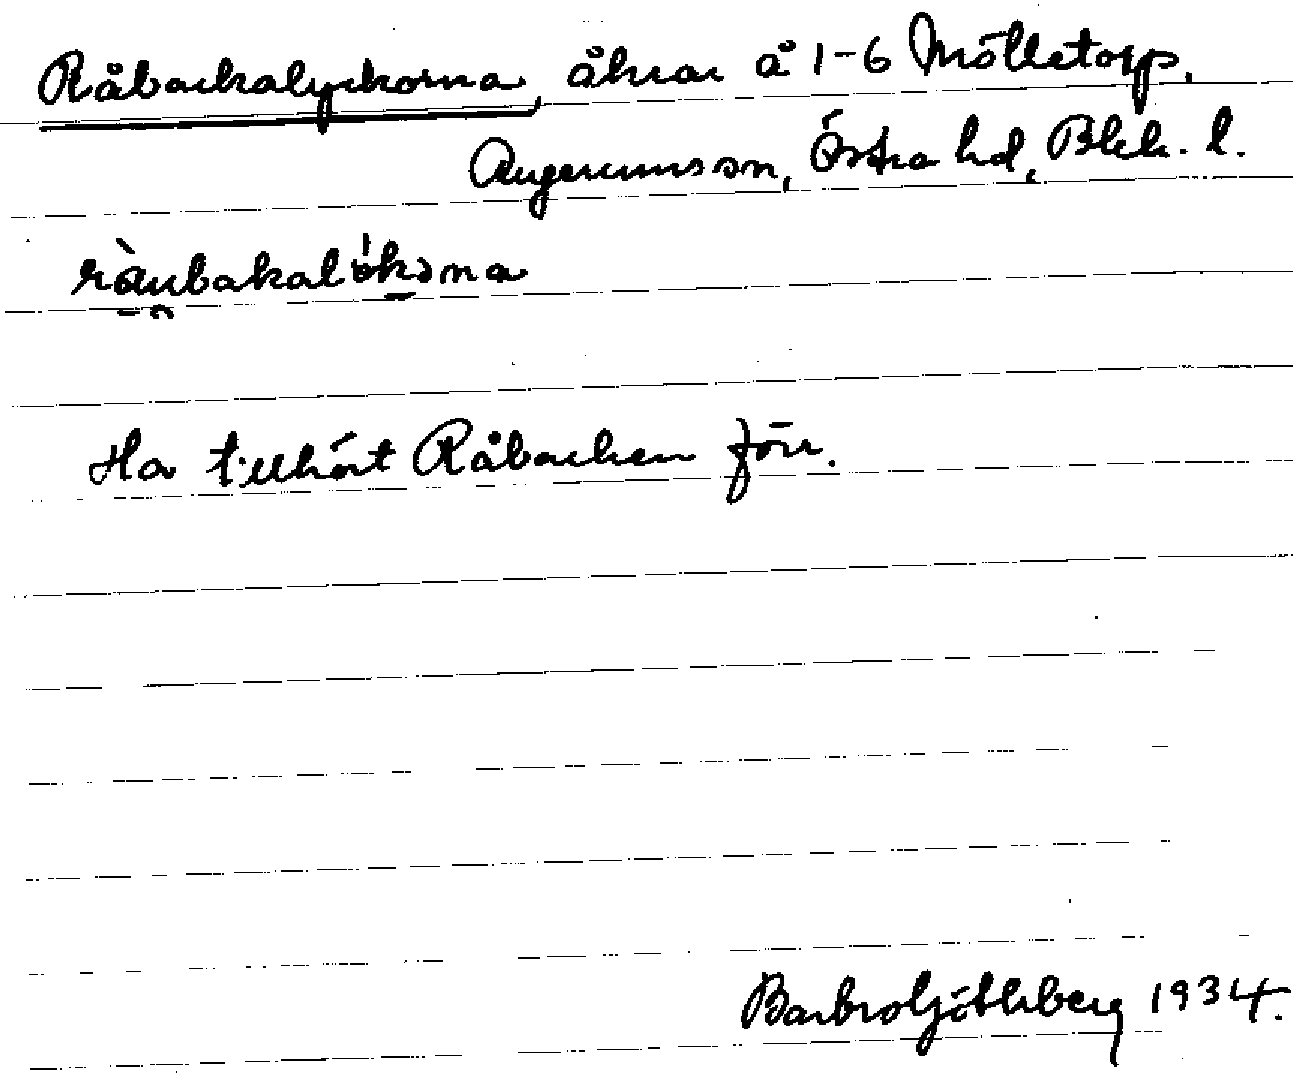 Råbackalyckorna, åkrar å 1-6 Mölletorp,
Augerums sn, Östra hd, Blek. l.
Ha tillhört Råbacken förr.
Barbro Götlberg 1934.